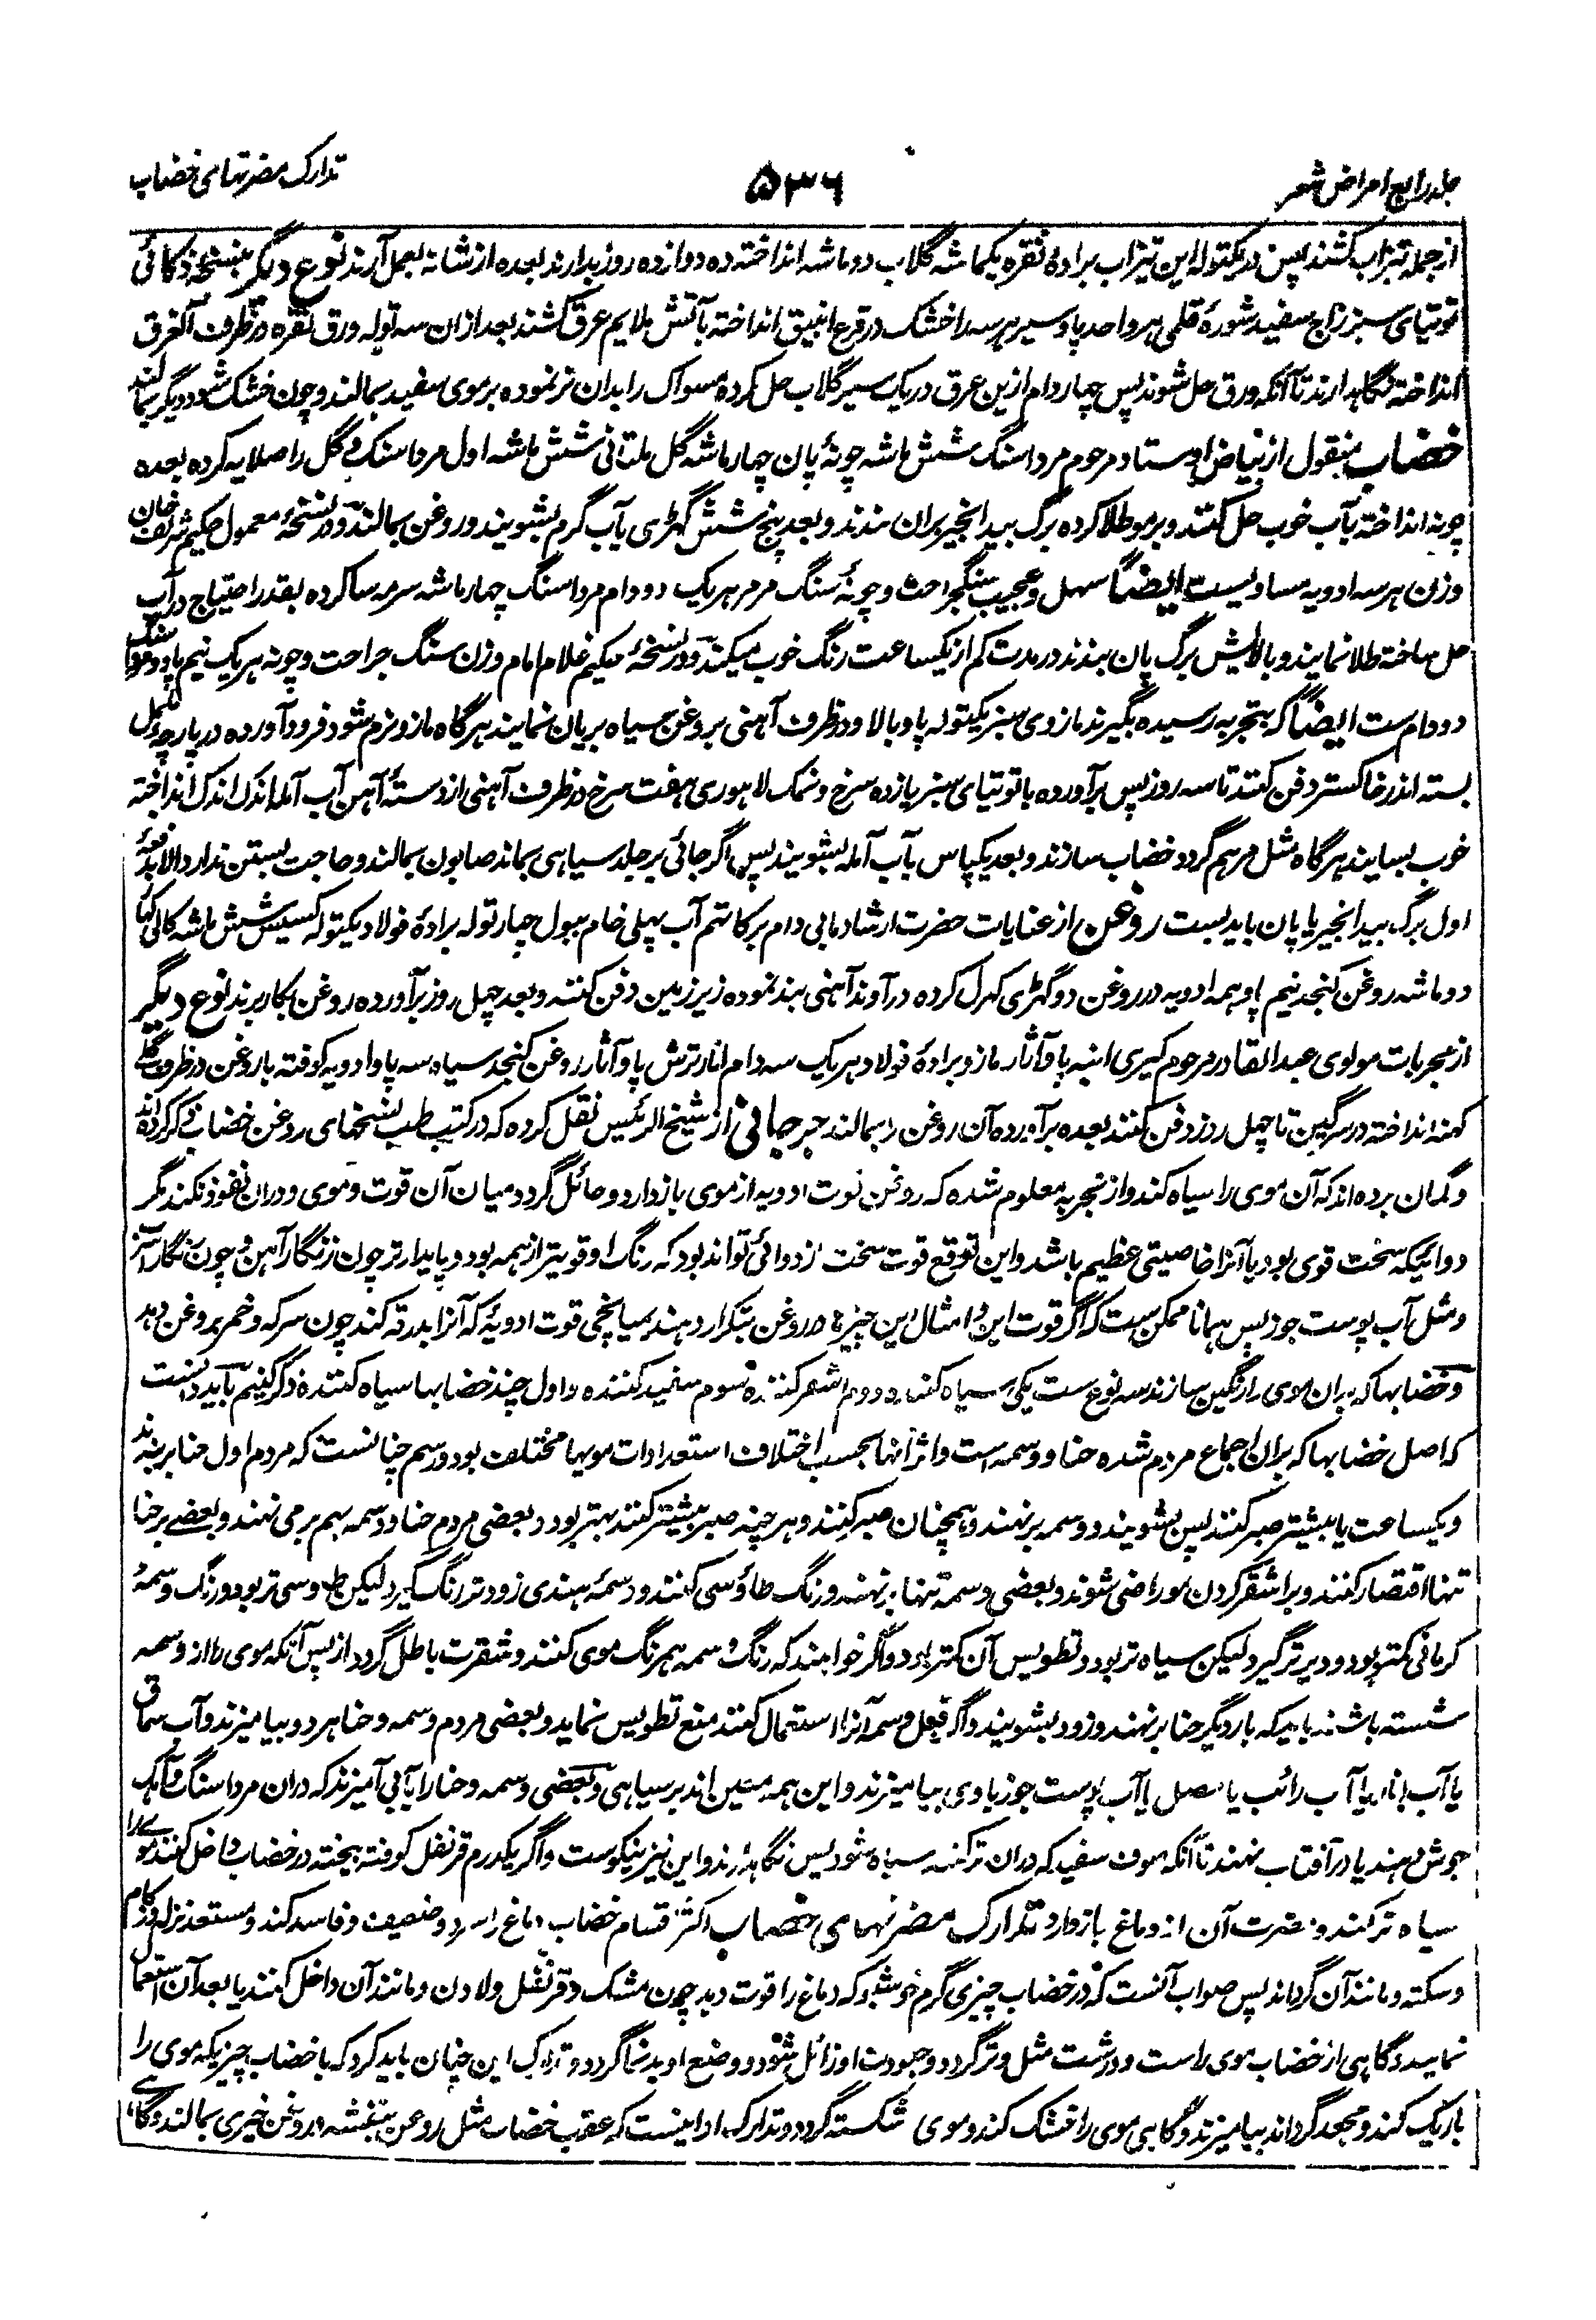 جلد رابع امراض شعر
۵۳۶
تدارک مضرتهای خضاب
از جمله تیزاب کشند پس در یکتوله این تیزاب برادهٔ نقره یکماشه گلاب دو ماشه انداخته ده دوازده روز بدارند بعده از شانه بعمل آرند نوع دیگر بنسخهٔ ذکائی
توتیای سبز زاج سفید شورهٔ قلمی هر واحد پاو سیر هر سه را خشک در قرع انبیق انداخته بآتش ملایم عرق کشند بعد ازان سه توله ورق نقره در ظرف آنعرق
انداخته نگاهدارند تا آنکه ورق حل شوند پس چهار دام ازین عرق در یک سیر گلاب حل کرده مسواک را بدان تر نموده بر موی سفید بمالند و چون خشک شود دیگر بمالند
خضاب منقول از بیاض اوستاد مرحوم مرداسنگ شش ماشه چونهٔ پان چهار ماشه گل ملتانی شش ماشه اول مرداسنگ و گل را صلایه کرده بعده
چونه انداخته بآب خوب حل کنند و بر مو طلا کرده برگ بید انجیر بران بندند و بعد پنج شش گهڑی بآب گرم بشویند و روغن بمالند و در نسخهٔ معمول حکیم شریف خان
وزن هر سه ادویه مساویست ایضاً سهل و عجیب سنگجراحت و چونهٔ سنگ مرمر هر یک دو دام مرداسنگ چهار ماشه سرمه سا کرده بقدر احتیاج در آب
حل ساخته طلا نمایند و بالایش برگ پان ببندند در مدت کم از یکساعت رنگ خوب میکند و در نسخهٔ حکیم غلام امام وزن سنگ جراحت و چونه هر یک نیم پاو و مرداسنگ
دو دام ست ایضاً که بتجربه رسیده بگیرند مازوی سبز یکتوله پاو بالا و در ظرف آهنی بروغن سیاه بریان نمایند هر گاه مازو نرم شود فرود آورده در پارچهٔ ململ
بسته اندر خاکستر دفن کنند تا سه روز پس برآورده با توتیای سبز یازده سرخ و نمک لاهوری هفت سرخ در ظرف آهنی از دستهٔ آهن آب آمله اندک اندک انداخته
خوب بسایند هر گاه مثل مرهم گردد خضاب سازند و بعد یکپاس بآب آمله بشویند پس اگر جائی بر جلد سیاهی بماند صابون بمالند و حاجت بستن ندارد الا بدفعهٔ
اول برگ بید انجیر یا پان باید بست روغن از عنایات حضرت ارشاد مابی دام برکاتهم آب پهلی خام ببول چهار توله برادهٔ فولاد یکتوله کسیس شش ماشه
دو ماشه روغن کنجد نیم پاو همه ادویه در روغن دو گهڑی کهرل کرده در آوند آهنی بند نموده زیر زمین دفن کنند و بعد چهل روز برآورده روغن بکار برند نوع دیگر
از مجربات مولوی عبد القادر مرحوم کیری انبه پاو آثار مازو برادهٔ فولاد هر یک سه دام انار ترش پاو آثار روغن کنجد سیاه سه پاو ادویه کوفته با روغن در ظرف گلی
کهنه انداخته در سرگین تا چهل روز دفن کنند بعده برآورده آن روغن را بمالند جرجانی از شیخ الرئیس نقل کرده که در کتب طب نسخهای روغن خضاب ذکر کرده‌اند
و گمان برده اند که آن موی را سیاه کند و از تجربه معلوم شده که روغن قوت ادویه از موی باز دارد و حائل گردد میان آن قوت و موی و دران نفوذ نکند مگر
دوائیکه سخت قوی بود یا آنرا خاصیتی عظیم باشد و این توقع قوت سخت از دوائی تواند بود که رنگ او قویتر از همه بود و پایدارتر چون زنگار آهن و چون زنگار
و مثل آب پوست جوز پس همانا ممکن ست که اگر قوت این و امثال این چیزها در روغن بتکرار دهند بمیانجی قوت ادویهٔ که آنرا بدرقه کند چون سرکه و خمر بروغن دهد
و خضابها که بران موی را رنگین سازند سه نوع ست یکی سیاه کننده دوم اشقر کننده سوم سفید کننده و اول چند خضابها سیاه کننده ذکر کنیم باید دانست
که اصل خضابها که بران اجماع مردم شده حنا و وسمه است و اثر آنها بحسب اختلاف استعدادات مویها مختلف بود و رسم چنانست که مردم اول حنا بر نهند
و یکساعت یا بیشتر صبر کنند پس بشویند و وسمه بر نهند و همچنان صبر کنند و هر چند صبر بیشتر کنند بهتر بود و بعضی مردم حنا و وسمه بهم بر می نهند و بعضے بر حنا
تنها اقتصار کنند و بر اشقر کردن مو راضی شوند و بعضی وسمه تنها بر نهند و رنگ طاؤسی کنند و وسمهٔ هندی زودتر رنگ گیرد لیکن طاوسی تر بود و رنگ وسمهٔ
کرمانی کمتر بود و دیرتر گیرد لیکن سیاه تر بود و تطویس آن کمتر بود و اگر خواهند که رنگ وسمه همرنگ موی کنند و شقرت باطل گردد از پس آنکه موی را از وسمه
شسته باشند باید که بار دیگر حنا بر نهند و زود بشویند و اگر قبل وسمه آنرا استعمال کنند منع تطویس نماید و بعضی مردم وسمه و حنا هر دو بیامیزند و آب سماق
یا آب انار یا آب رائب یا مصل یا آب پوست جوز با وی بیامیزند و این همه معین اند بر سیاهی و بعضی وسمه و حنا را بآبی آمیزند که دران مرداسنگ و آهک
جوش دهند یا در آفتاب نهند تا آنکه صوف سفید که دران تر کنند سیاه شود پس نگاهدارند و این نیز نیکوست و اگر یکدرم قرنفل کوفته بیخته در خضاب داخل کنند موے را
سیاه تر کند و مضرت آن از دماغ باز دارد تدارک مضرتهای خضاب اکثر اقسام خضاب دماغ را سرد و ضعیف و فاسد کند و مستعد نزله و زکام
و سکته و مانند آن گرداند پس صواب آنست که در خضاب چیزی گرم خوشبو که دماغ را قوت دهد چون مشک و قرنفل و لادن و مانند آن داخل کنند یا بعد آن استعمال
نمایند و گاهی از خضاب موی راست و درشت مثل وتر گردد و جودت او زائل شود و وضع او بدنما گردد و تدارک این چنان باید کرد که با خضاب چیزیکه موی را
باریک کند و مجعد گرداند بیامیزند و گاهی موی را خشک کند و موی شکسته گردد و تدارک او اینست که عقب خضاب مثل روغن بنفشه و روغن خیری بمالند و گاهے